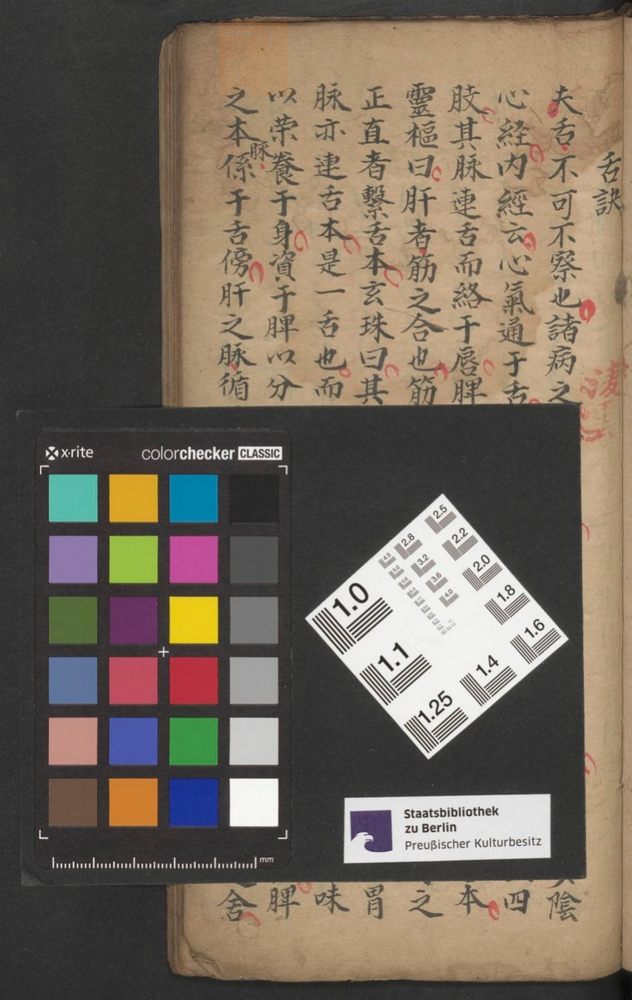 舌訣
夫舌不可不察也諸病之
陰
心経内經云心氣通于舌
四
肢其脉連舌而絡于唇脾
本
靈樞曰肝者筋之合也筋
之
正直者繫舌本玄珠曰其
胃
脉亦連舌本是一舌也而
味
以荣養于身資于脾以分
脾
之本係于舌傍肝之脉循
脉
舍
x-rite
colorchecker CLASSIC
mm
2.5
2.8
2.2
3.2
2.0
3.6
1.8
4.0
1.0
1.6
1.1
1.4
1.25
Staatsbibliothek
zu Berlin
Preußischer Kulturbesitz